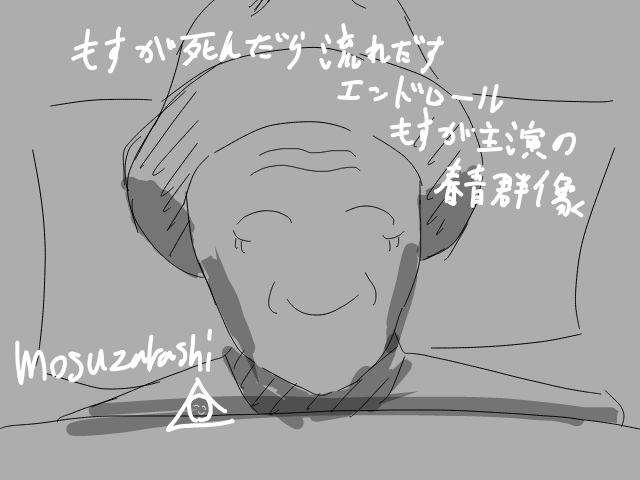 もすが死んだら流れだす
エンドロール
もすが主演の
春音群像
mosuzakashi